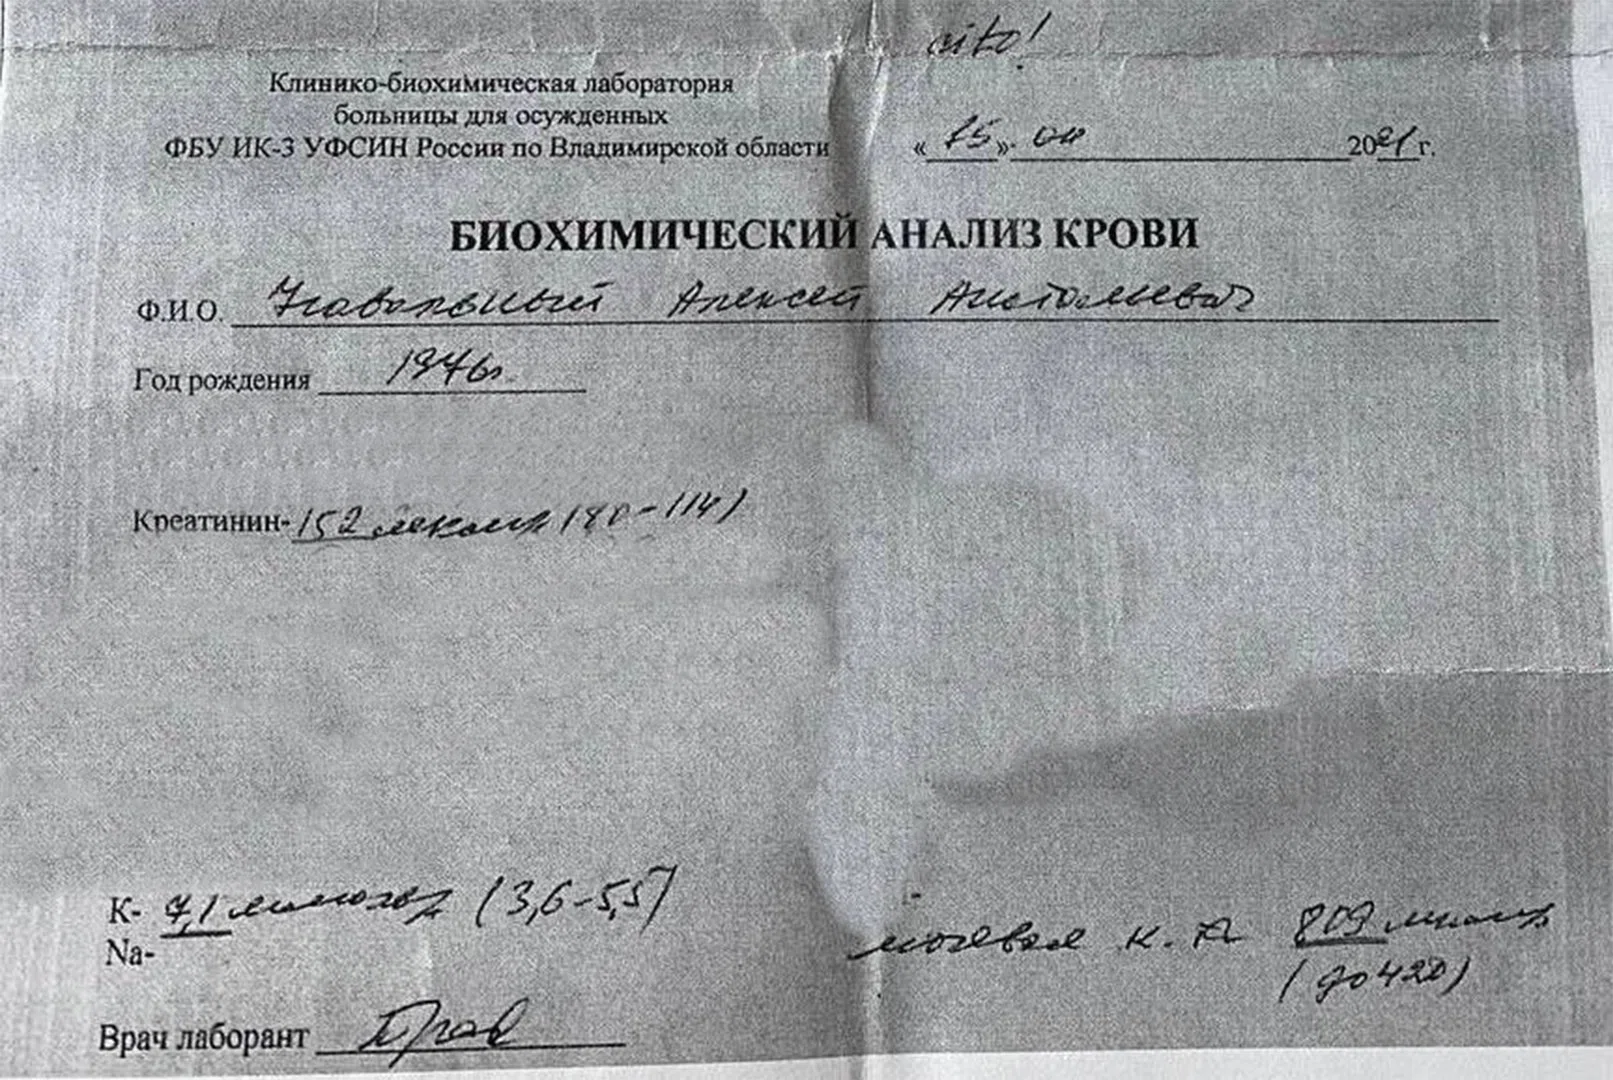 cito!
Клинико-биохимическая лаборатория
больницы для осужденных
ФБУ ИК-3 УФСИН России по Владимирской области
«15» 04 2021г.
БИОХИМИЧЕСКИЙ АНАЛИЗ КРОВИ
Ф.И.О. Навальный Алексей Анатольевич
Год рождения 1976г.
Креатинин- 152 мкмоль/л (80-114)
К- 7,1 ммоль/л (3,6-5,5)
Na-
мочевая к.та 809 мкмоль/л
(до 420)
Врач лаборант